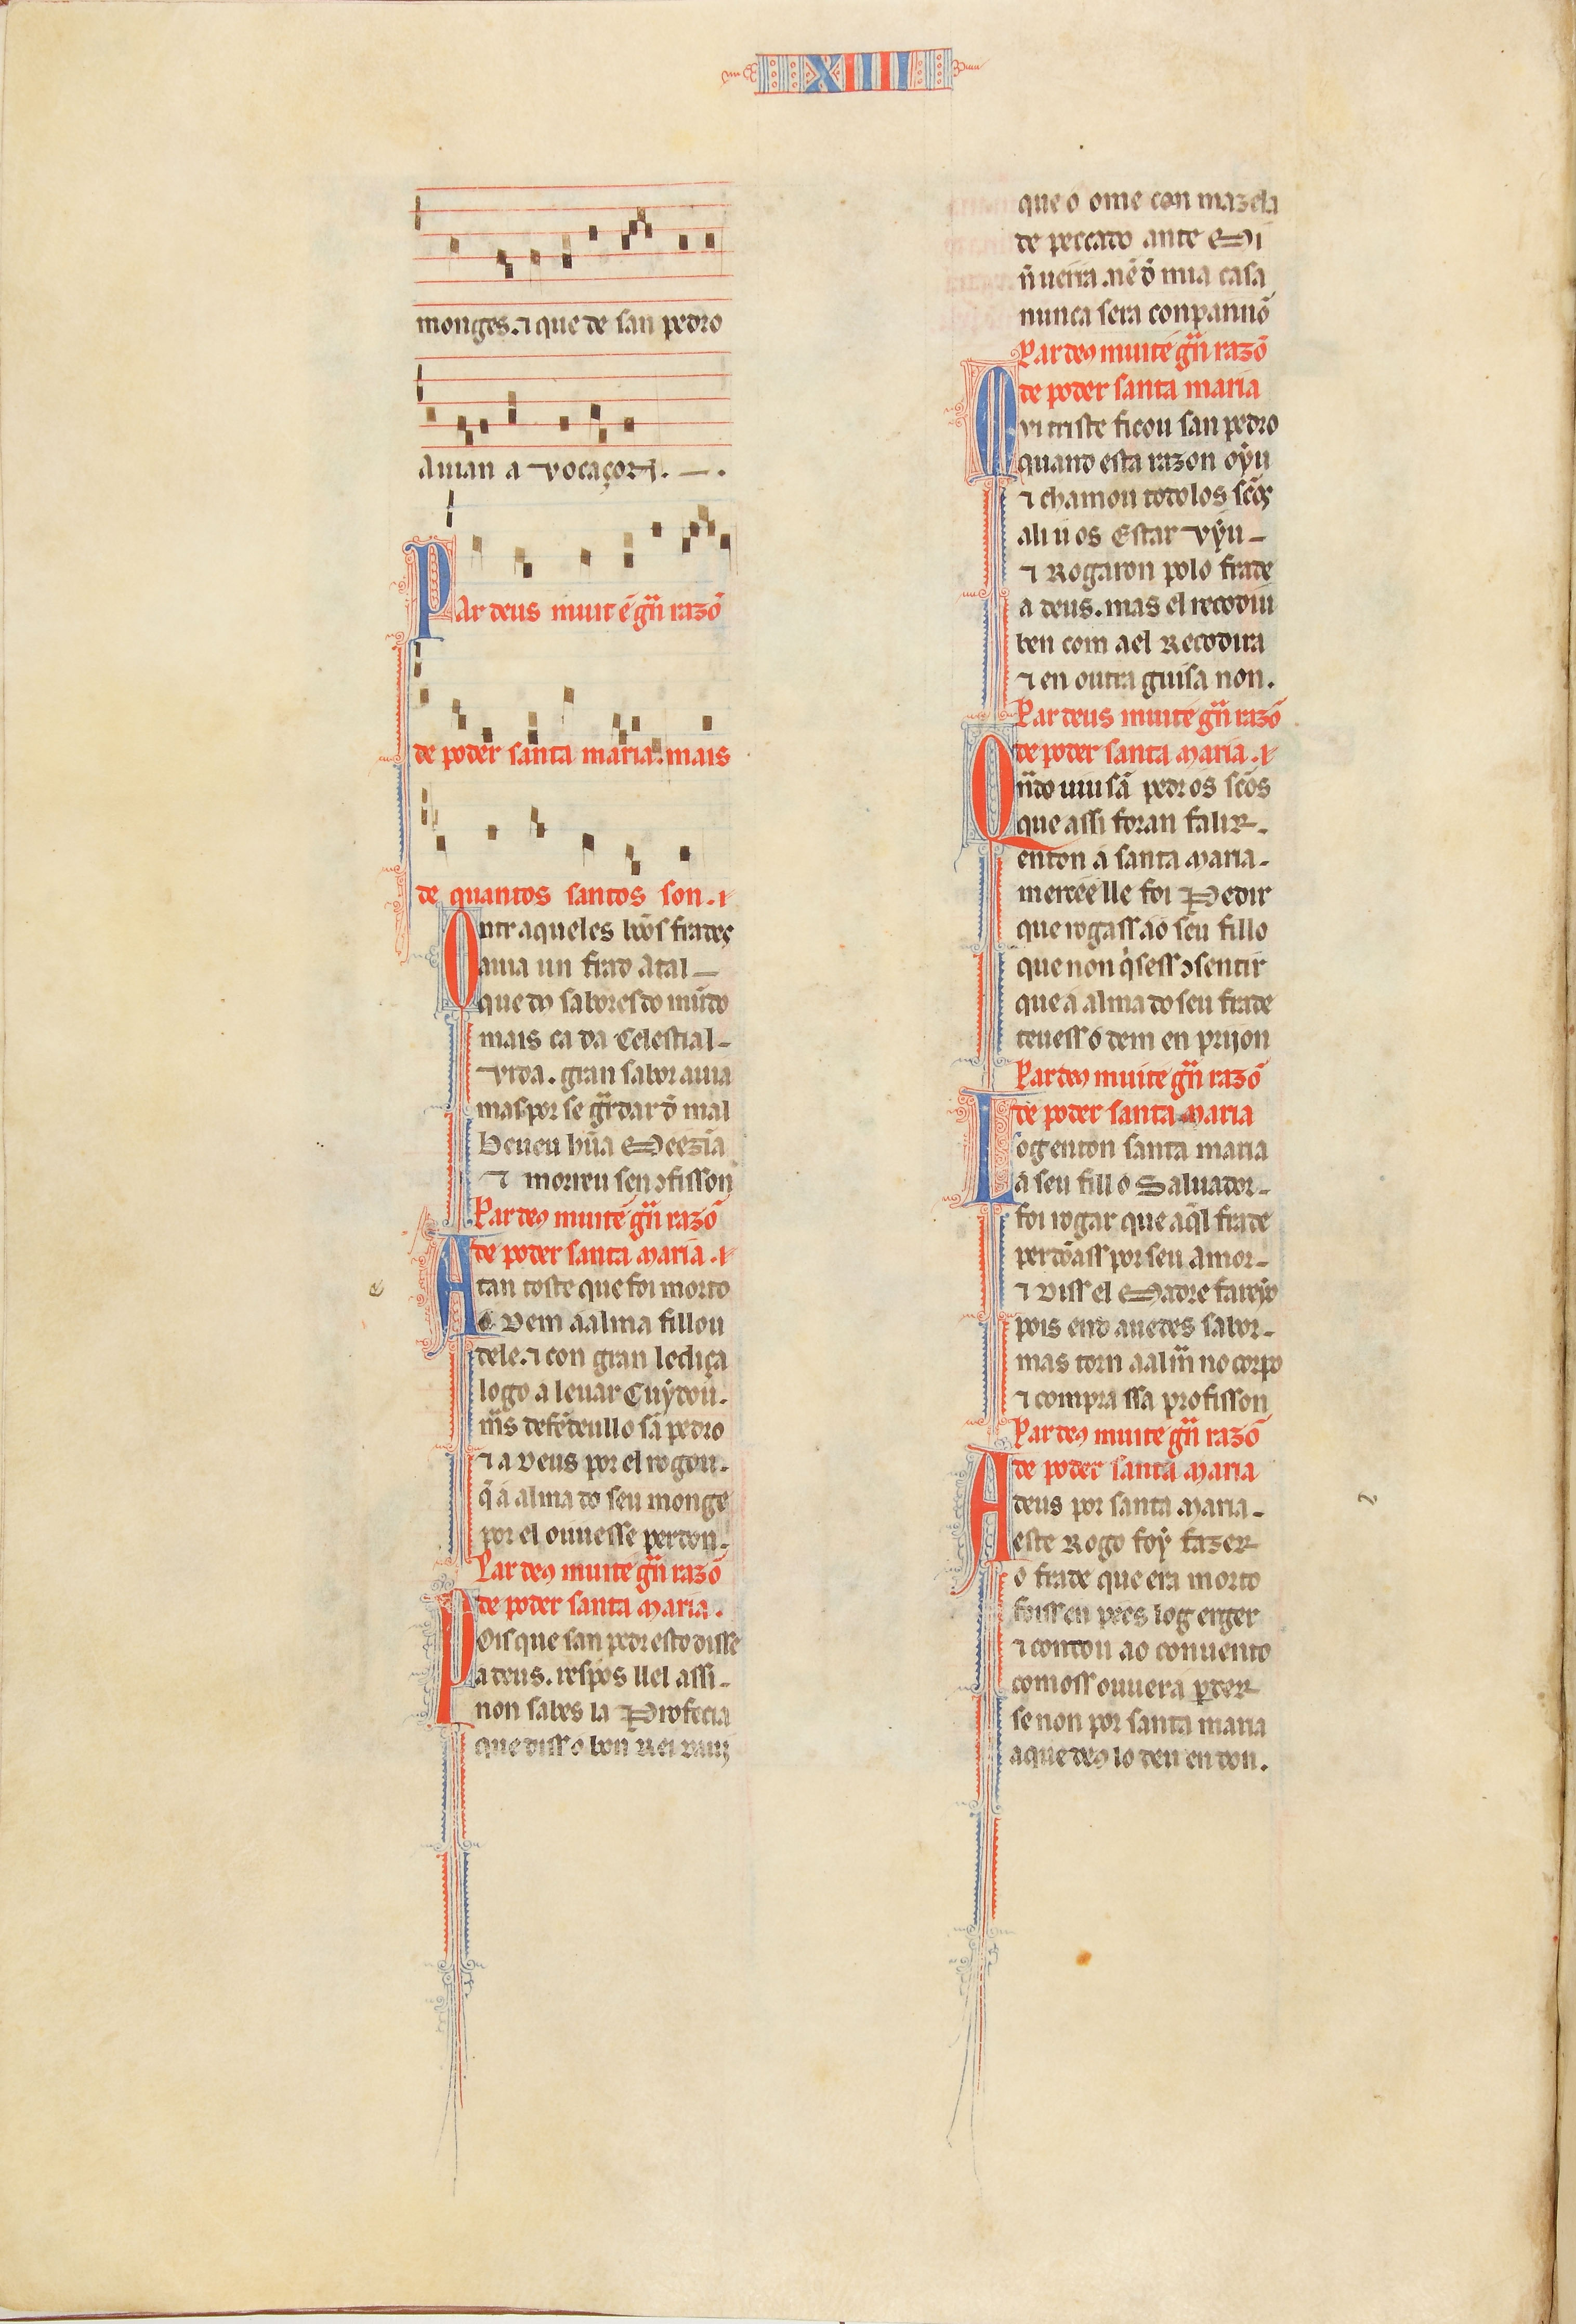 XIIII
monges. ⁊ que de san pedro
auian a vocaçon.
Par deus muit é gn̄ razō
de poder santa maria. mais
de quantos santos son.
Ontraqueles bōos frades
auia un frad atal
que dos sabores do mūdo
mais ca da celestial
vida. gran sabor auia
mas por se gr̄dar d̄ mal
beueu hūa meezīa
⁊ morreu sen ɔfisson
Par deus muit é gn̄ razō
de poder santa maria.
Atan toste que foi morto
o dem a alma fillou
dele. ⁊ con gran lediça
logo a leuar cuydou.
m̄s defēdeullo sā pedro
⁊ a deus por el rogou.
q̄ a alma do seu monge
por el ouuesse perdon.
Par deus muit é gn̄ razō
de poder santa maria.
Pois que san pedr esto disse
a deus. respos llel assi
non sabes la profecia
que diss o bon Rei daui
que o ome con mazela
de peccado ante mi
n̄ uerra. nē d̄ mia casa
nunca sera conpannō
Par deus muit é gn̄ razō
de poder santa maria
Mui triste ficou san pedro
quand esta razon oyu
⁊ chamou todolos scōs
ali u os estar vyu
⁊ Rogaron polo frade
a deus. mas el recodiu
ben com a el Recodira
⁊ en outra guisa non.
Par deus muit é gn̄ razō
de poder santa maria.
Qn̄do uiu sā pedr os scōs
que assi foran falir
enton a santa maria
mercēe lle foi pedir
que rogass ao seu fillo
que non q̇sess ɔsentir
que a alma do seu frade
teuess o dem en prijon
Par deus muit é gn̄ razō
de poder santa maria
Logenton santa maria
a seu fill o saluador
foi rogar que aq̄l frade
perdōass por seu amor
⁊ diss el madre fareyo
pois end auedes sabor
mas torn a alm̄ no corpo
⁊ compra ssa profisson
Par deus muit é gn̄ razō
de poder santa maria
A deus por santa maria
este Rogo foy fazer
o frade que era morto
foiss en pees log erger
⁊ contou ao conuento
comoss ouuera ꝑder
se non por santa maria
a que deus lo deu en don.